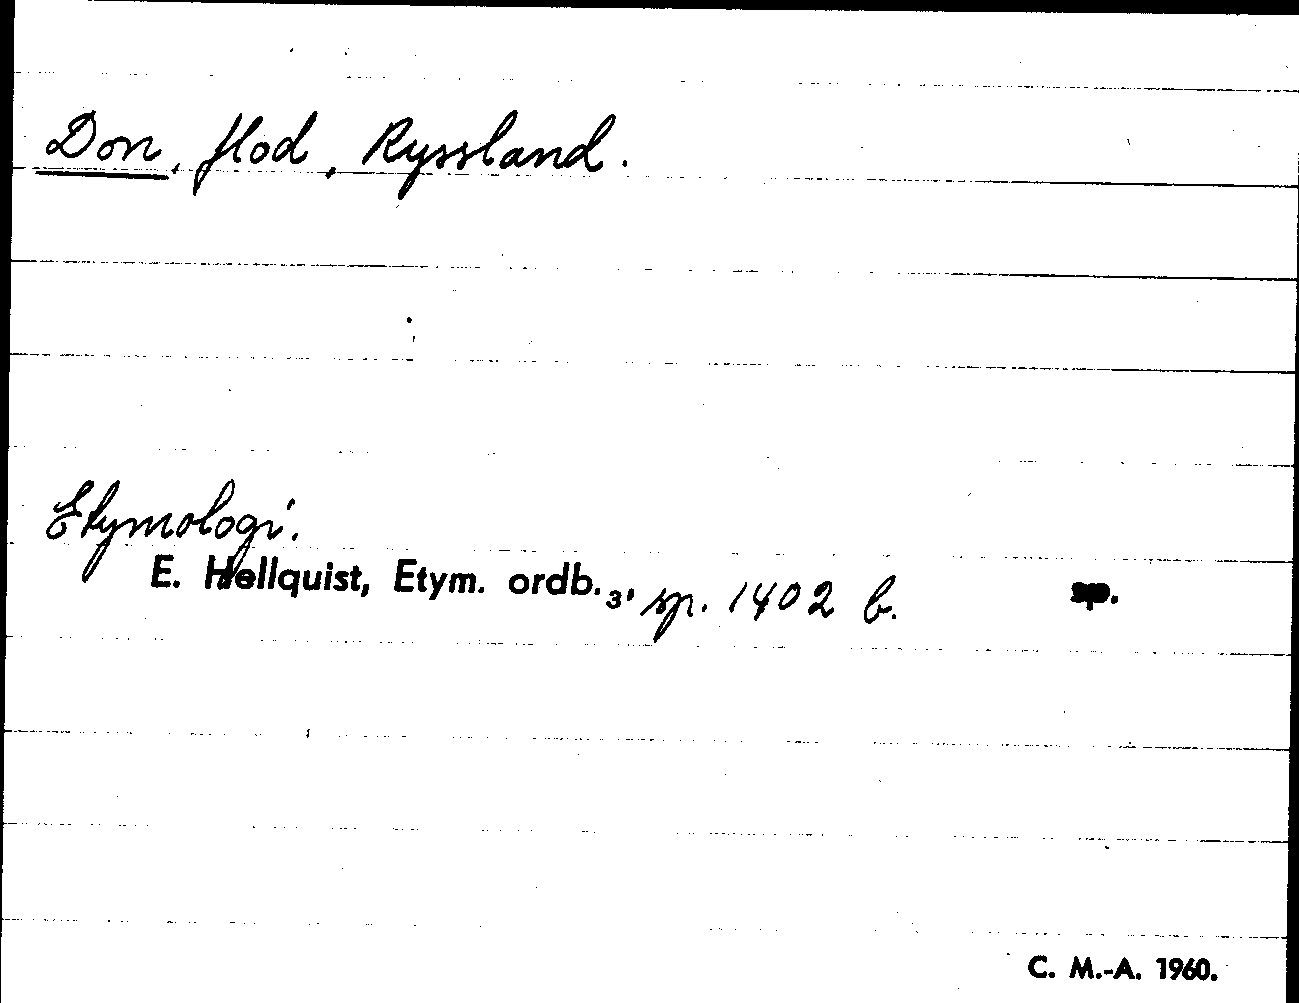 Don, flod, Ryssland.
Etymologi.
E. Hellquist, Etym. ordb. 3, sp. 1402 b. sp.
C. M.-A. 1960.